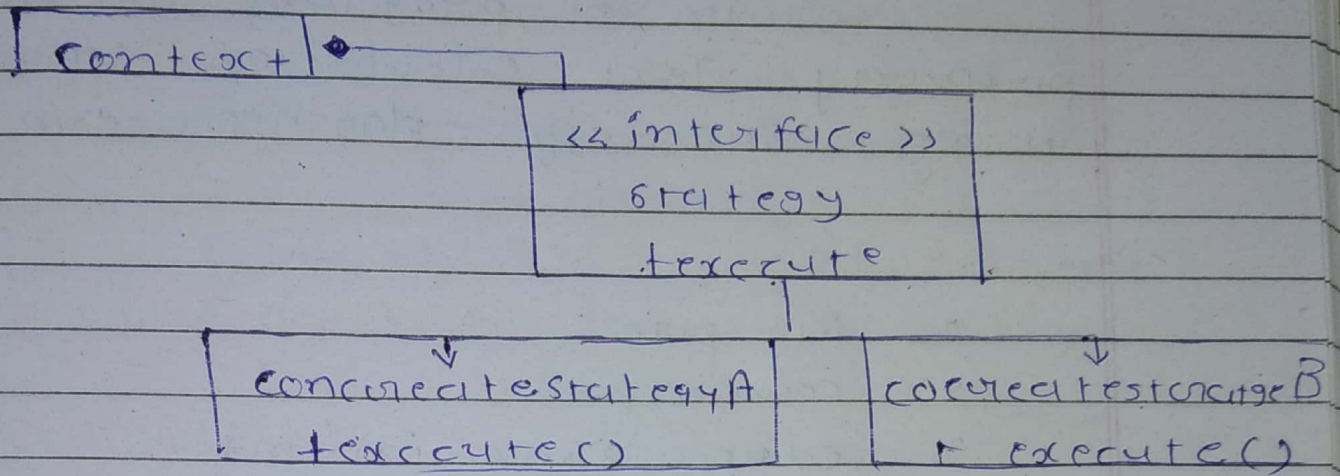 context
<< interface >>
strategy
+execute
concreatestrategyA
+execute()
cocreatestratgeB
+ execute()